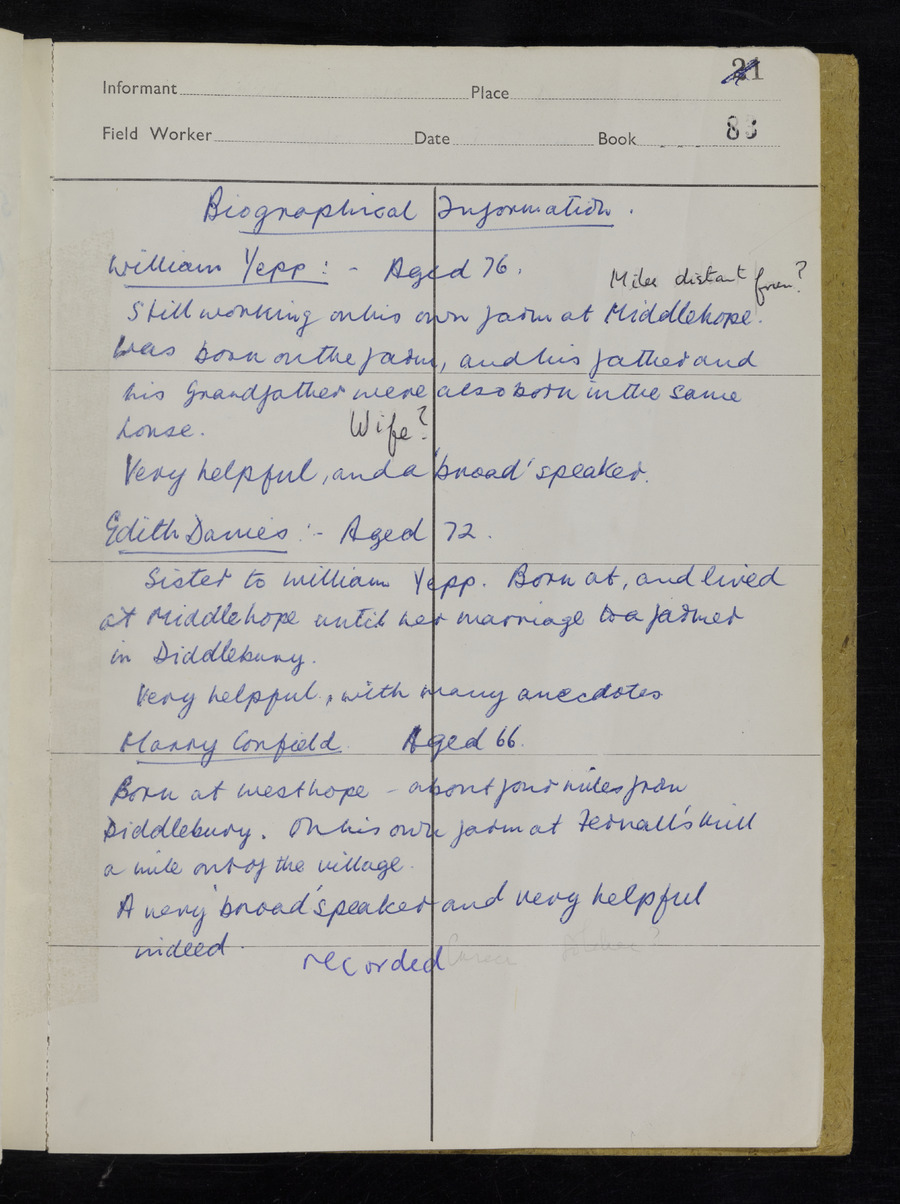 21
Informant Place
Field Worker Date Book 83
Biographical Information.
William Yepp: - Aged 76.
Miles distant from?
Still working on his own farm at Middlehope.
Was born on the farm, and his father and
his Grandfather were also born in the same
house. Wife?
Very helpful, and a 'broad' speaker.
Edith Davies :- Aged 72.
Sister to William Yepp. Born at, and lived
at Middlehope until her marriage to a farmer
in Diddlebury.
Very helpful, with many anecdotes
Harry Confield. Aged 66.
Born at Westhope - about four miles from
Diddlebury. On his own farm at Fernall's Mill
a mile out of the village.
A very 'broad' speaker and very helpful
indeed.
recorded